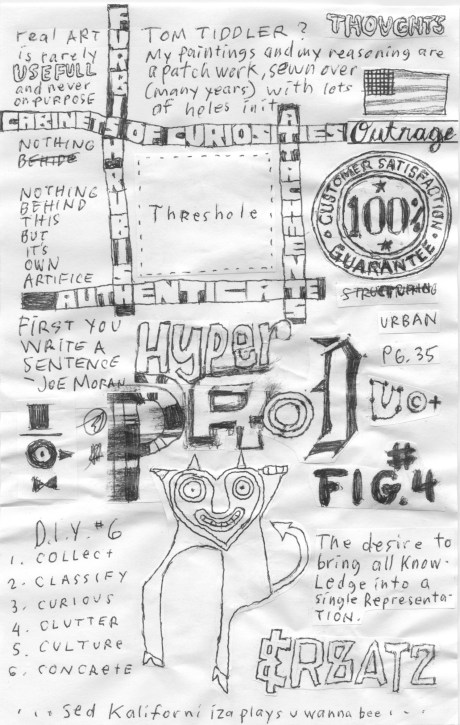 real ART
is rarely
USEFULL
and never
on purpose
TOM TIDDLER?
My paintings and my reasoning are
a patch work, sewn over
(many years) with lots
of holes in it
THOUGHTS
CABINETS OF CURIOSITIES
Outrage
NOTHING
BEHIDE
NOTHING
BEHIND
THIS
BUT
IT'S
OWN
ARTIFICE
Threshole
CUSTOMER SATISFACTION
100%
GUARANTEE
AUTHENTICATE
STRUCTURING
URBAN
PG. 35
FIRST YOU
WRITE A
SENTENCE
-JOE MORAN
Hyper
U©+
#
FIG.4
D.I.Y. #6
1. COLLECT
2. CLASSIFY
3. CURIOUS
4. CLUTTER
5. CULTURE
6. CONCRETE
The desire to
bring all Know-
Ledge into a
single Representa-
TION.
&RSATZ
... sed Kaliforni iza plays u wanna bee ...